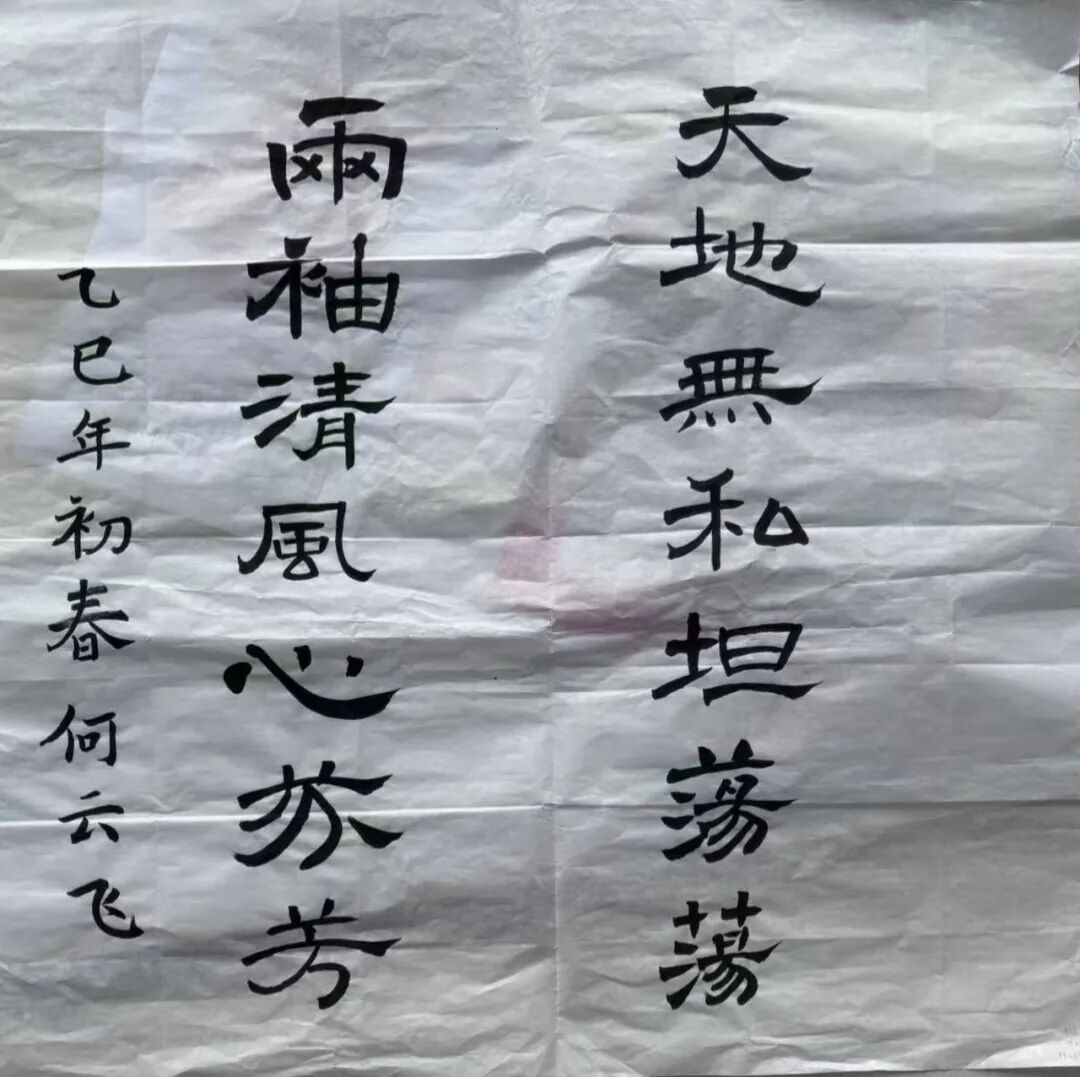 天地無私坦蕩蕩
兩袖清風心亦芳
乙巳年初春何云飞